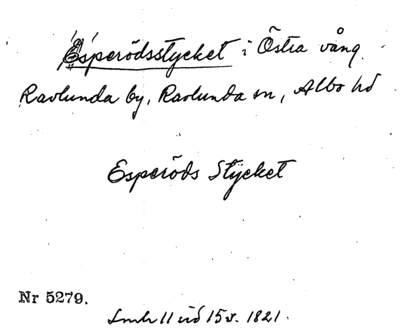 Esperödsstycket i Östra vång
Ravlunda by, Ravlunda sn, Albo hd
Esperöds Stycket
Nr 5279.
15 1821.